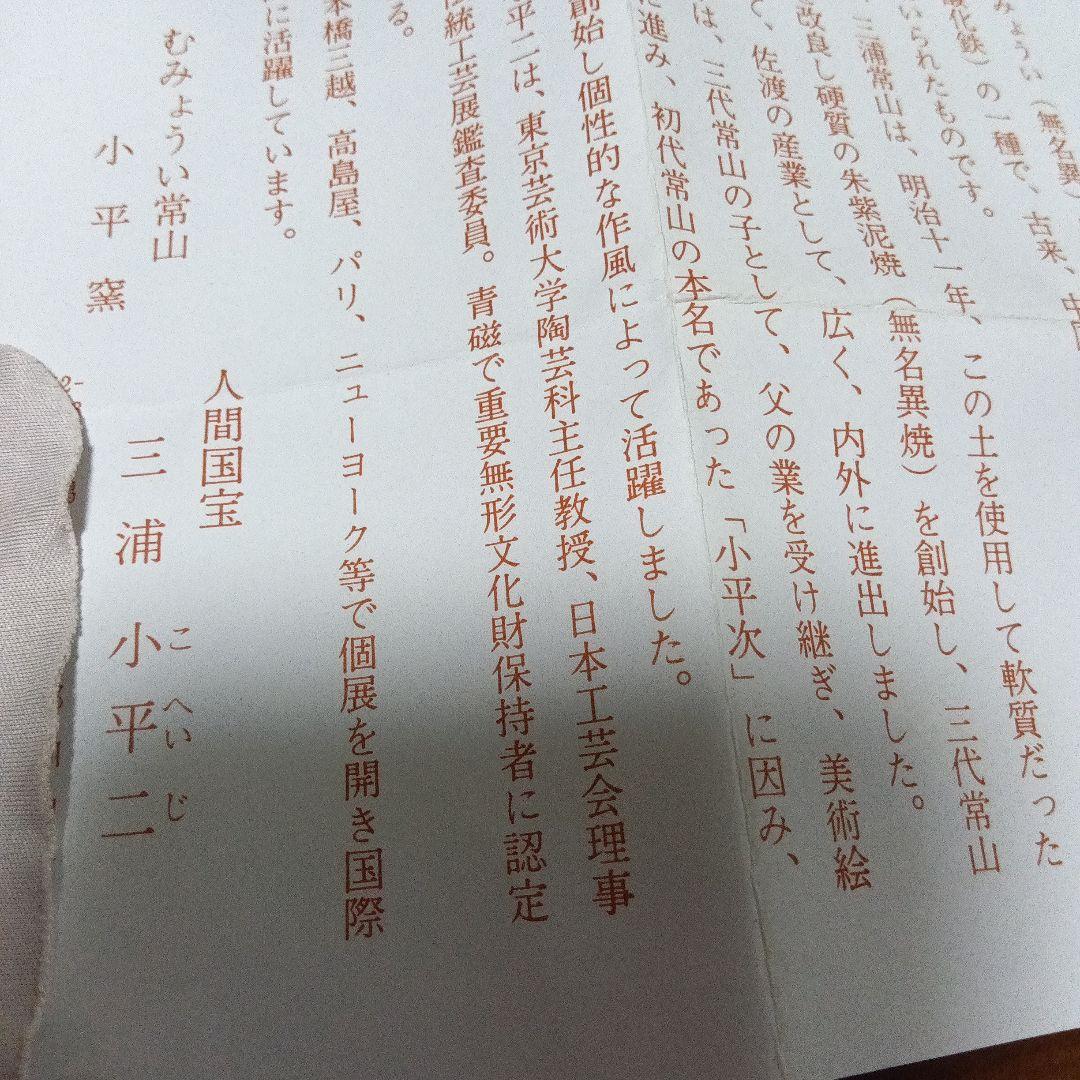 みょうい（無名異）
酸化鉄）の一種で、古来、中国
いられたものです。
三浦常山は、明治十一年、この土を使用して軟質だった
改良し硬質の朱紫泥焼（無名異焼）を創始し、三代常山
て、佐渡の産業として、広く、内外に進出しました。
は、三代常山の子として、父の業を受け継ぎ、美術絵
に進み、初代常山の本名であった「小平次」に因み、
創始し個性的な作風によって活躍しました。
平二は、東京芸術大学陶芸科主任教授、日本工芸会理事
伝統工芸展鑑査委員。青磁で重要無形文化財保持者に認定
る。
本橋三越、高島屋、パリ、ニューヨーク等で個展を開き国際
に活躍しています。
むみょうい常山
小平窯
人間国宝
三浦小平二
こへいじ